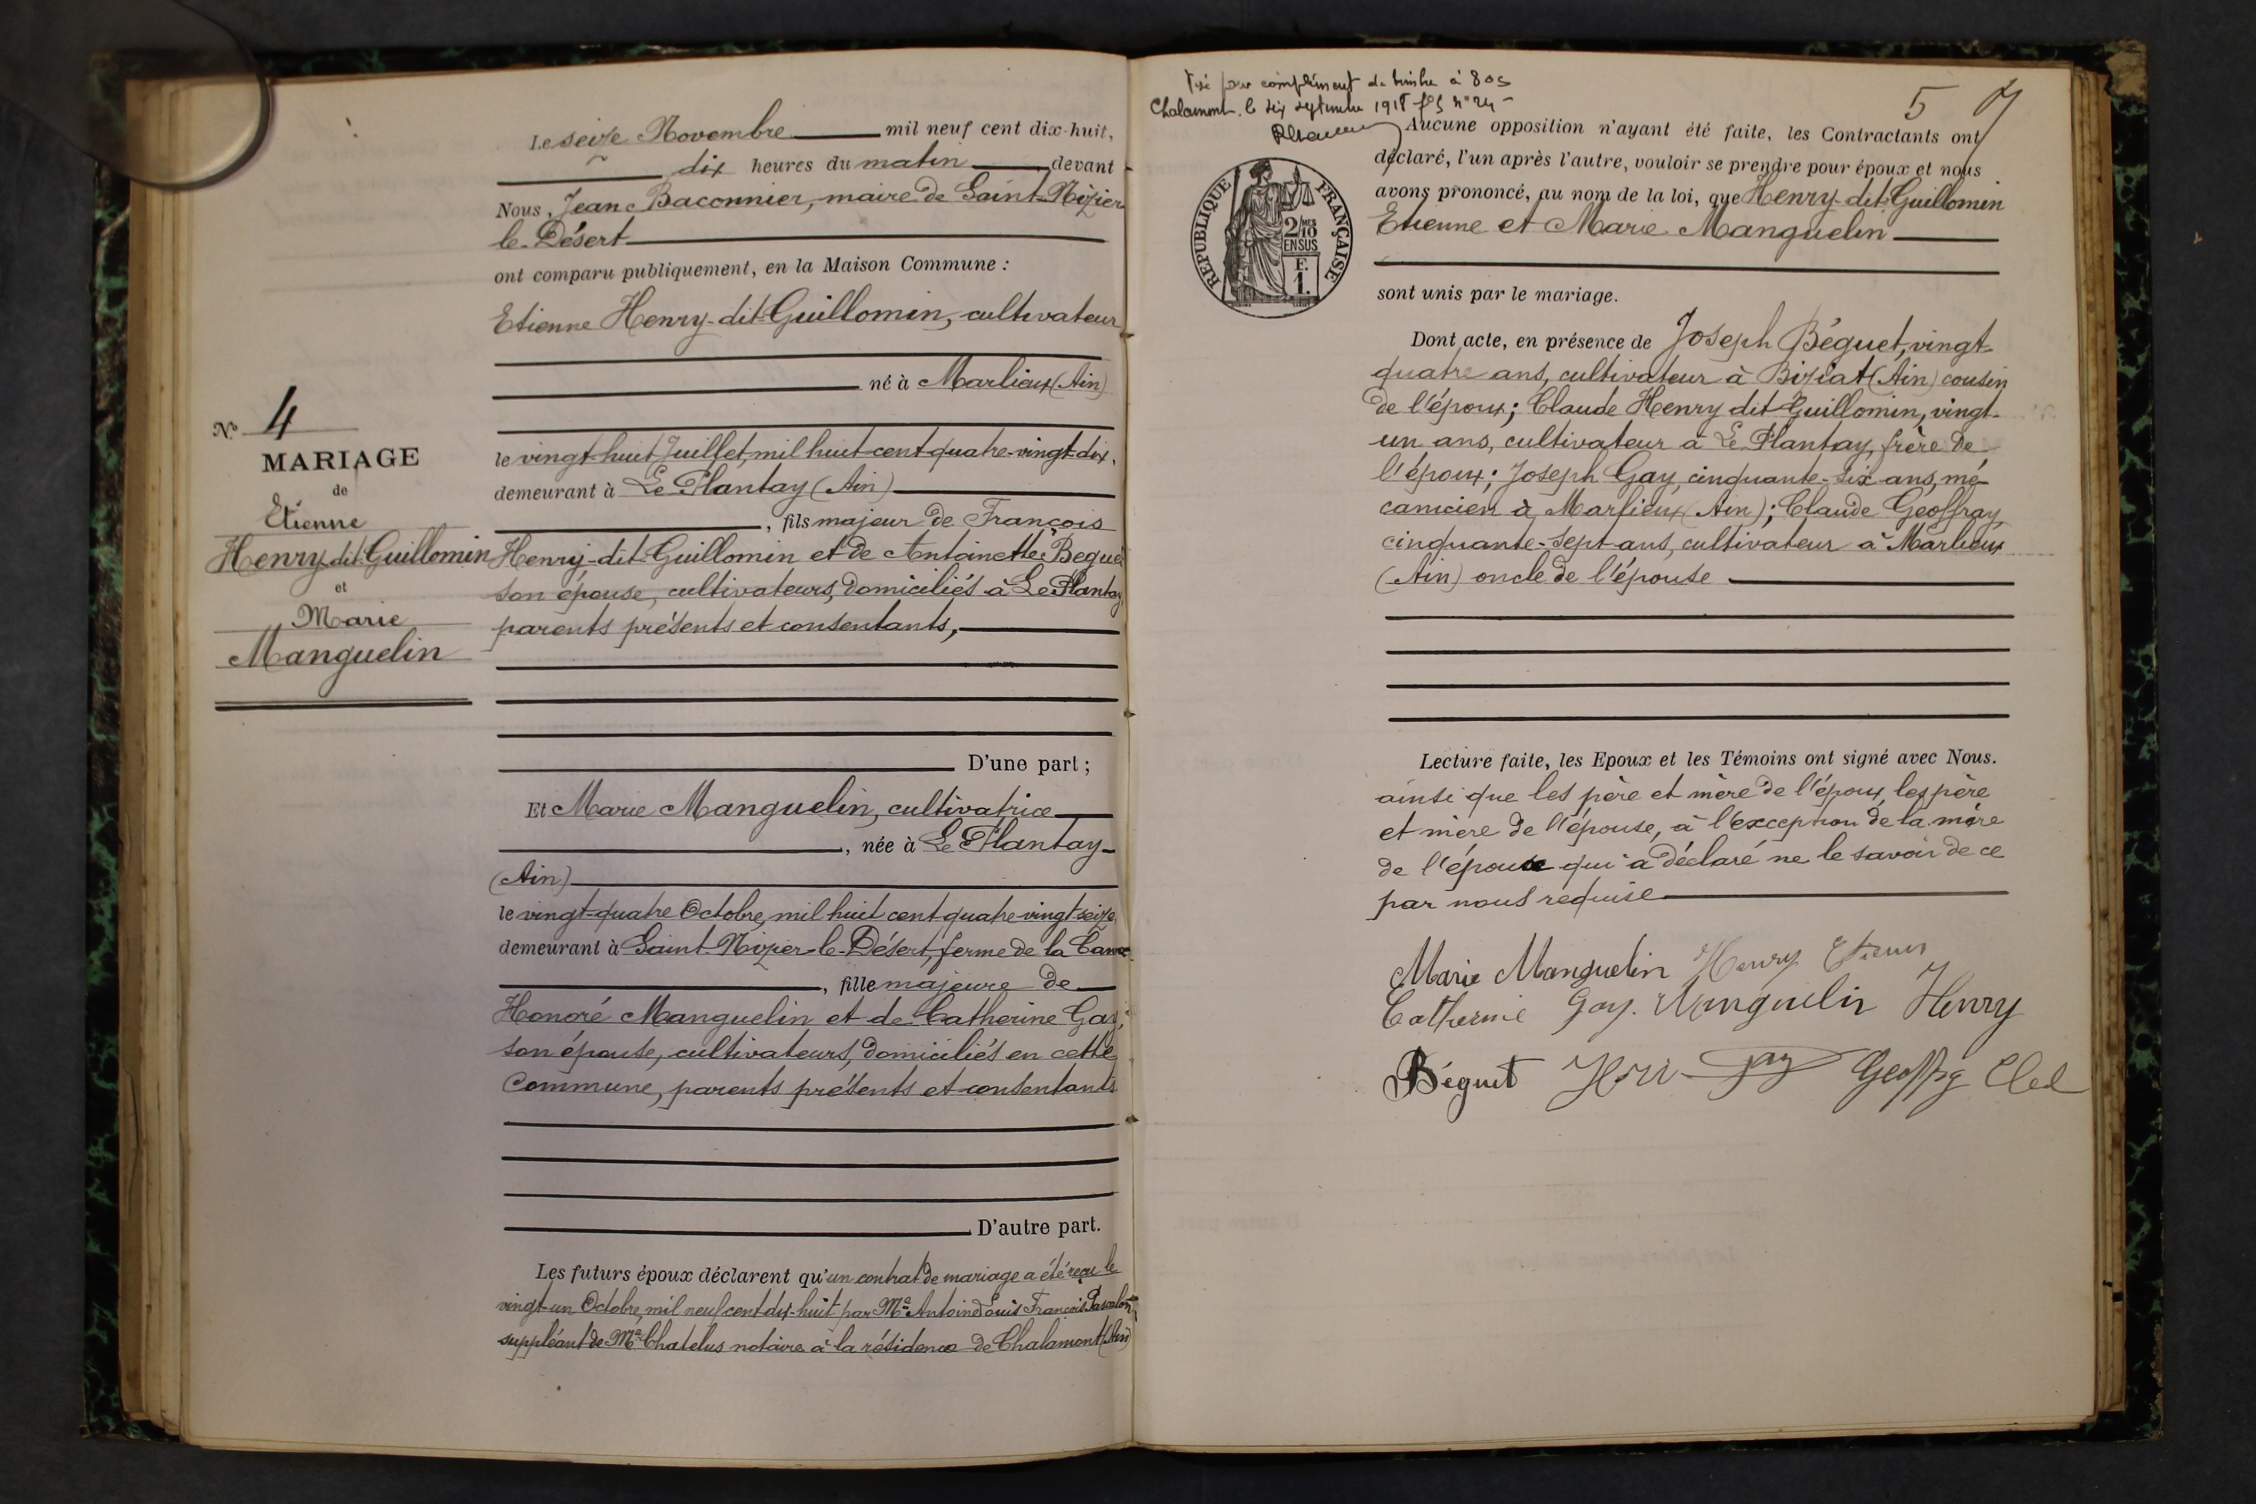 Le seize Novembre mil neuf cent dix-huit,
dix heures du matin, devant
Nous, Jean Baconnier, maire de Saint-Nizier
le-Désert
ont comparu publiquement, en la Maison Commune :
Etienne Henry-dit-Guillomin, cultivateur
né à Marlieux (Ain)
le vingt-huit Juillet, mil huit cent quatre-vingt-dix,
demeurant à Le Plantay (Ain)
, fils majeur de François
Henry-dit-Guillomin et de Antoinette Beguet
son épouse, cultivateurs, domiciliés à Le Plantay
parents présents et consentants,
D'une part ;
Et Marie Manguelin, cultivatrice
, née à Le Plantay
(Ain)
le vingt-quatre Octobre, mil huit cent quatre-vingt-seize
demeurant à Saint-Nizier-le-Désert, ferme de la
, fille majeure de
Honoré Manguelin et de Catherine Gay,
son épouse, cultivateurs, domiciliés en cette
Commune, parents présents et consentants
D'autre part.
Les futurs époux déclarent qu'un contrat de mariage a été reçu le
vingt-un Octobre, mil neuf cent dix-huit par Me Antoine Louis François
suppléant de Me Chatelus notaire à la résidence de Chalamont (Ain)
No 4
MARIAGE
de
Etienne
Henry-dit-Guillomin
et
Marie
Manguelin
Visé pour complément de timbre à 80c
Chalamont, le dix septembre 1918 fo5 no24
5
RÉPUBLIQUE FRANÇAISE
2/10MES
EN SUS
F.
1.
Aucune opposition n'ayant été faite, les Contractants ont
déclaré, l'un après l'autre, vouloir se prendre pour époux et nous
avons prononcé, au nom de la loi, que Henry-dit-Guillomin
Etienne et Marie Manguelin
sont unis par le mariage.
Dont acte, en présence de Joseph Béguet, vingt-
quatre ans, cultivateur à Biziat (Ain) cousin
de l'époux ; Claude Henry dit Guillomin, vingt-
un ans, cultivateur à Le Plantay, frère de
l'époux ; Joseph Gay, cinquante-six ans, mé-
canicien à Marlieux (Ain) ; Claude Geoffray,
cinquante-sept ans, cultivateur à Marlieux
(Ain) oncle de l'épouse
Lecture faite, les Epoux et les Témoins ont signé avec Nous.
ainsi que les père et mère de l'époux, les père
et mère de l'épouse, à l'exception de la mère
de l'épouse qui a déclaré ne le savoir de ce
par nous requise
Marie Manguelin Henry Etienne
Catherine Gay. Manguelin Henry
Béguet Gay